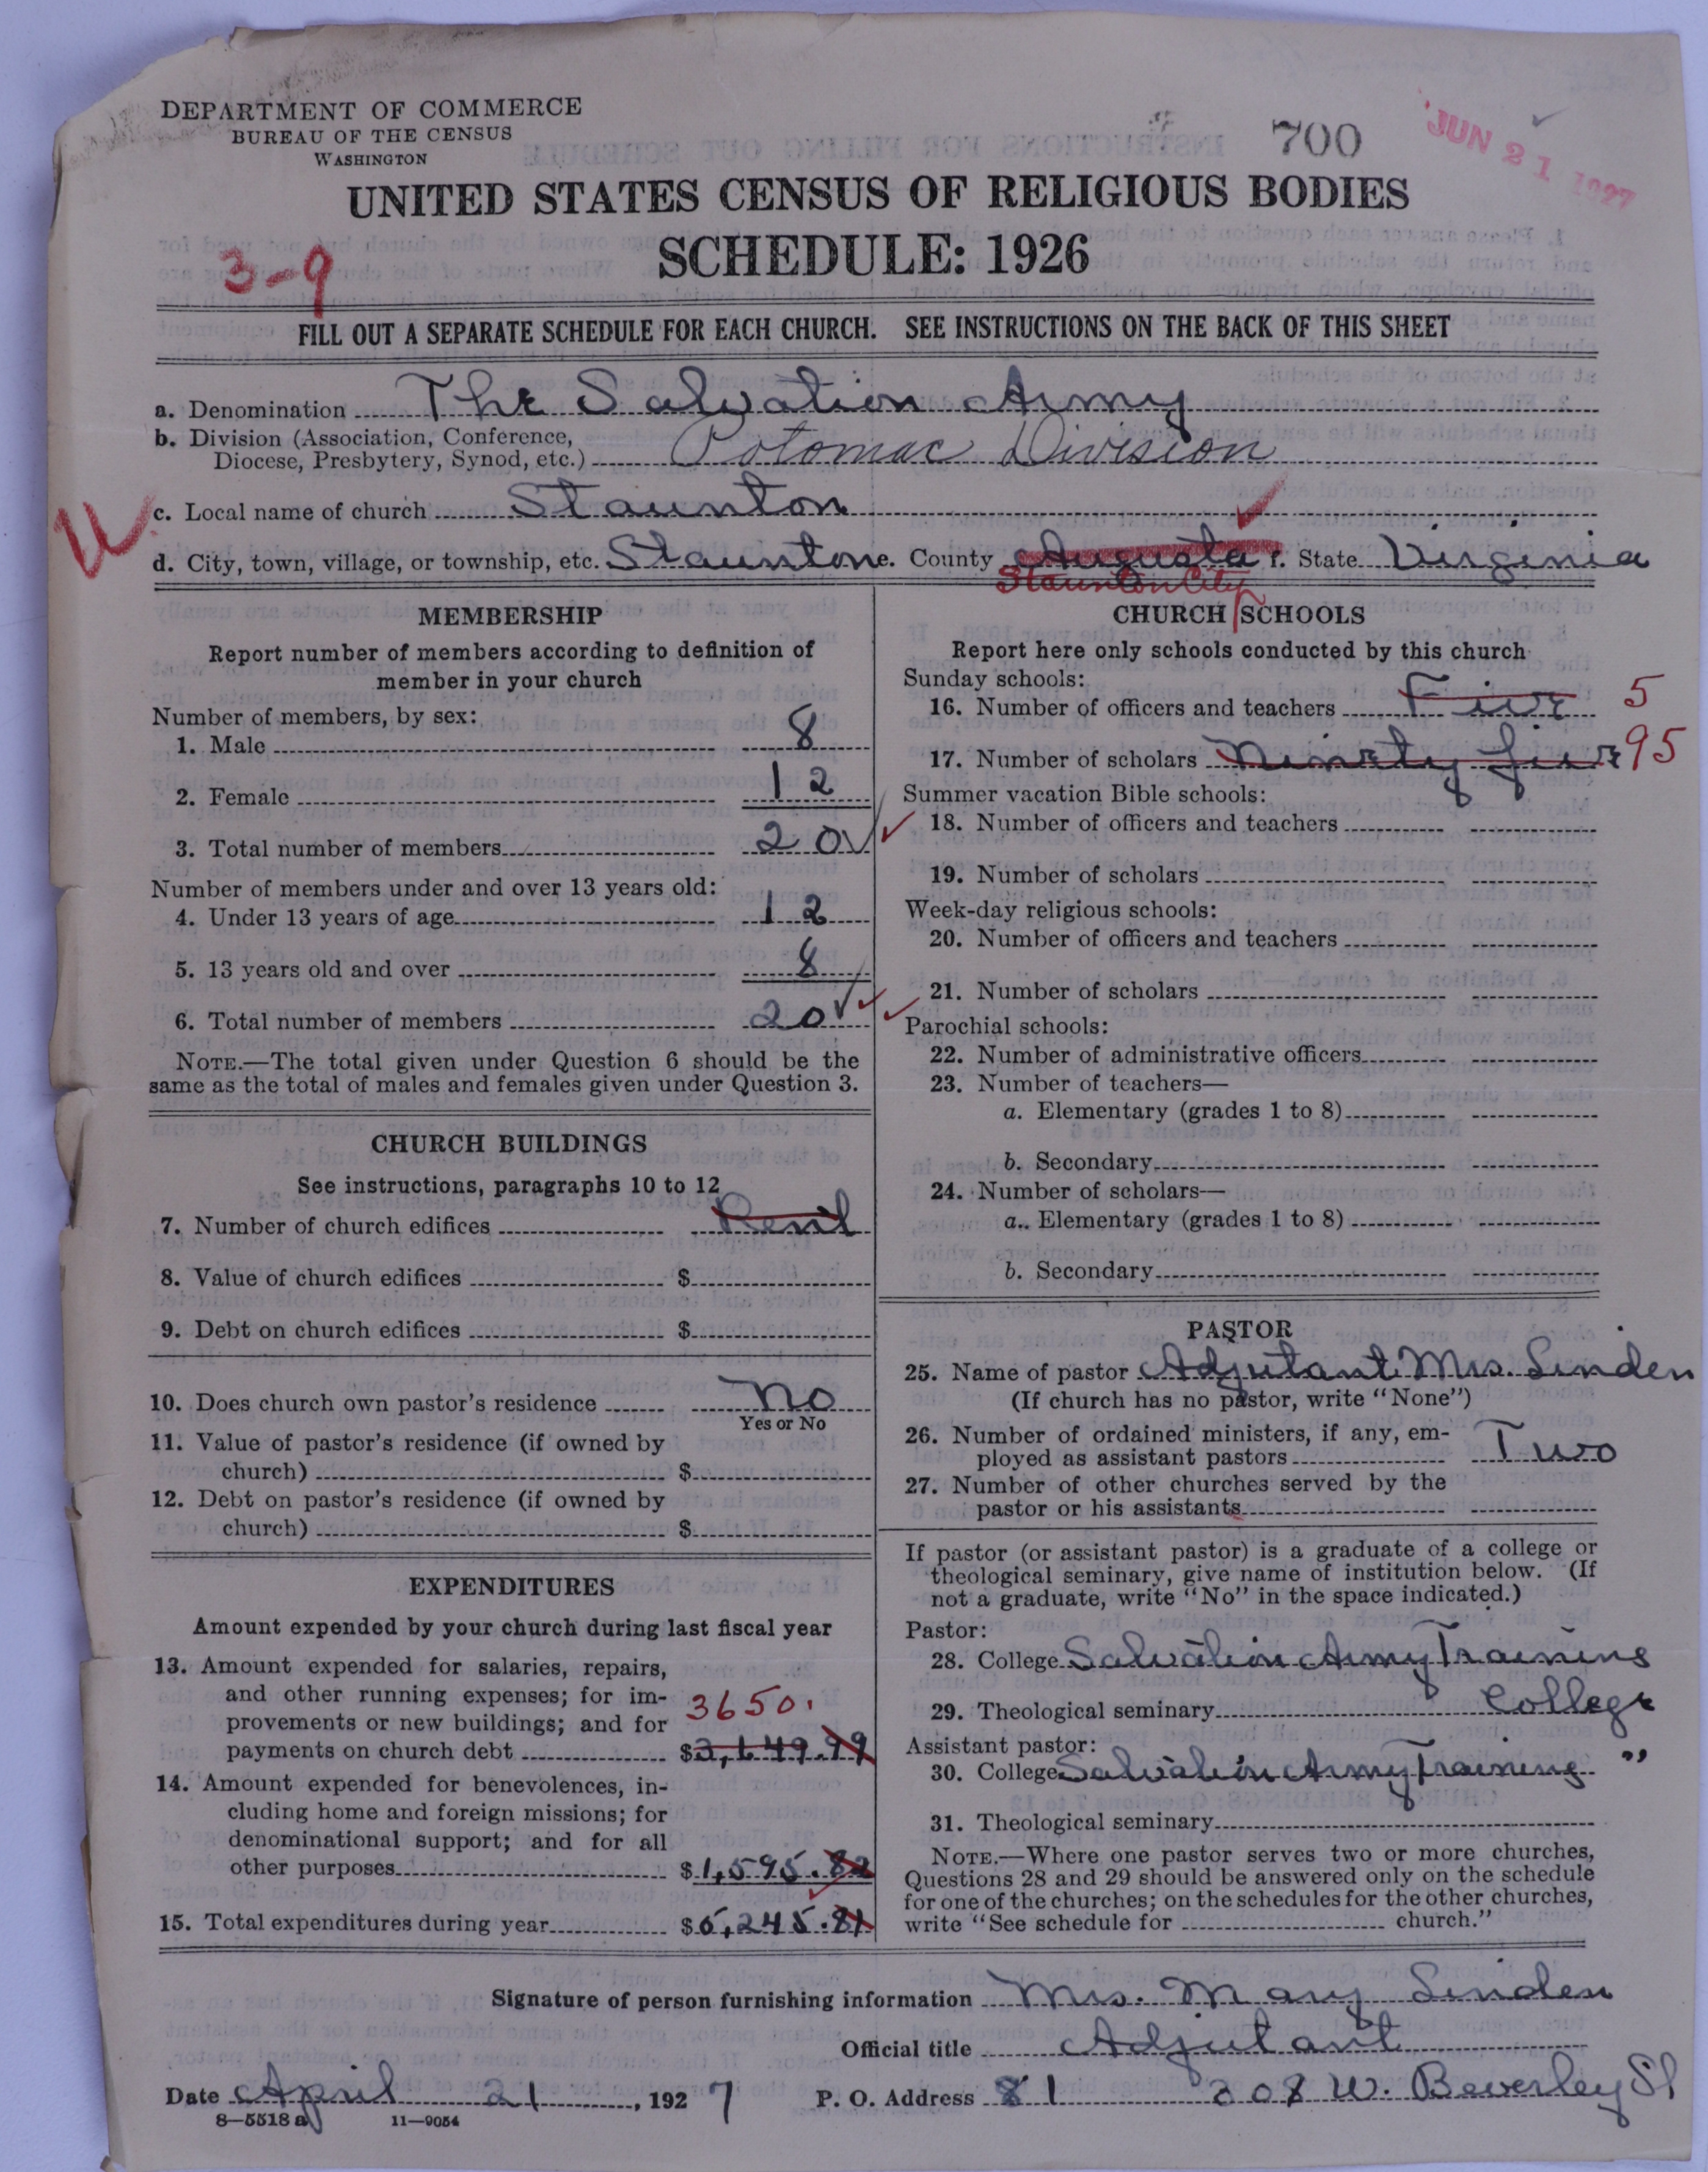 DEPARTMENT OF COMMERCE
BUREAU OF THE CENSUS
WASHINGTON
700
JUN 21 1927
UNITED STATES CENSUS OF RELIGIOUS BODIES
SCHEDULE: 1926
3-9
FILL OUT A SEPARATE SCHEDULE FOR EACH CHURCH. SEE INSTRUCTIONS ON THE BACK OF THIS SHEET
a. Denomination The Salvation Army
b. Division (Association, Conference,
Diocese, Presbytery, Synod, etc.) Potomac Division
c. Local name of church Staunton
d. City, town, village, or township, etc. Staunton e. County Augusta f. State Virginia
Staunton City
MEMBERSHIP
Report number of members according to definition of
member in your church
Number of members, by sex:
1. Male 8
2. Female 12
3. Total number of members 20
Number of members under and over 13 years old:
4. Under 13 years of age 12
5. 13 years old and over 8
6. Total number of members 20
NOTE.—The total given under Question 6 should be the
same as the total of males and females given under Question 3.
CHURCH BUILDINGS
See instructions, paragraphs 10 to 12
7. Number of church edifices Rent
8. Value of church edifices $
9. Debt on church edifices $
10. Does church own pastor's residence No
Yes or No
11. Value of pastor's residence (if owned by
church) $
12. Debt on pastor's residence (if owned by
church) $
EXPENDITURES
Amount expended by your church during last fiscal year
13. Amount expended for salaries, repairs,
and other running expenses; for im-
provements or new buildings; and for
3650.
payments on church debt $3,649.99
14. Amount expended for benevolences, in-
cluding home and foreign missions; for
denominational support; and for all
other purposes $1,595.82
15. Total expenditures during year $5,245.81
CHURCH SCHOOLS
Report here only schools conducted by this church
Sunday schools:
16. Number of officers and teachers Five 5
17. Number of scholars Ninety five 95
Summer vacation Bible schools:
18. Number of officers and teachers
19. Number of scholars
Week-day religious schools:
20. Number of officers and teachers
21. Number of scholars
Parochial schools:
22. Number of administrative officers
23. Number of teachers—
a. Elementary (grades 1 to 8)
b. Secondary
24. Number of scholars—
a. Elementary (grades 1 to 8)
b. Secondary
PASTOR
25. Name of pastor Adjutant Mrs. Linden
(If church has no pastor, write "None")
26. Number of ordained ministers, if any, em-
ployed as assistant pastors Two
27. Number of other churches served by the
pastor or his assistants
If pastor (or assistant pastor) is a graduate of a college or
theological seminary, give name of institution below. (If
not a graduate, write "No" in the space indicated.)
Pastor:
28. College Salvation Army Training
29. Theological seminary College
Assistant pastor:
30. College Salvation Army Training "
31. Theological seminary
NOTE.—Where one pastor serves two or more churches,
Questions 28 and 29 should be answered only on the schedule
for one of the churches; on the schedules for the other churches,
write "See schedule for church."
Signature of person furnishing information Mrs. Mary Linden
Official title Adjutant
Date April 21, 1927 P. O. Address 81 208 W. Beverley St
8—5518 a 11—9054